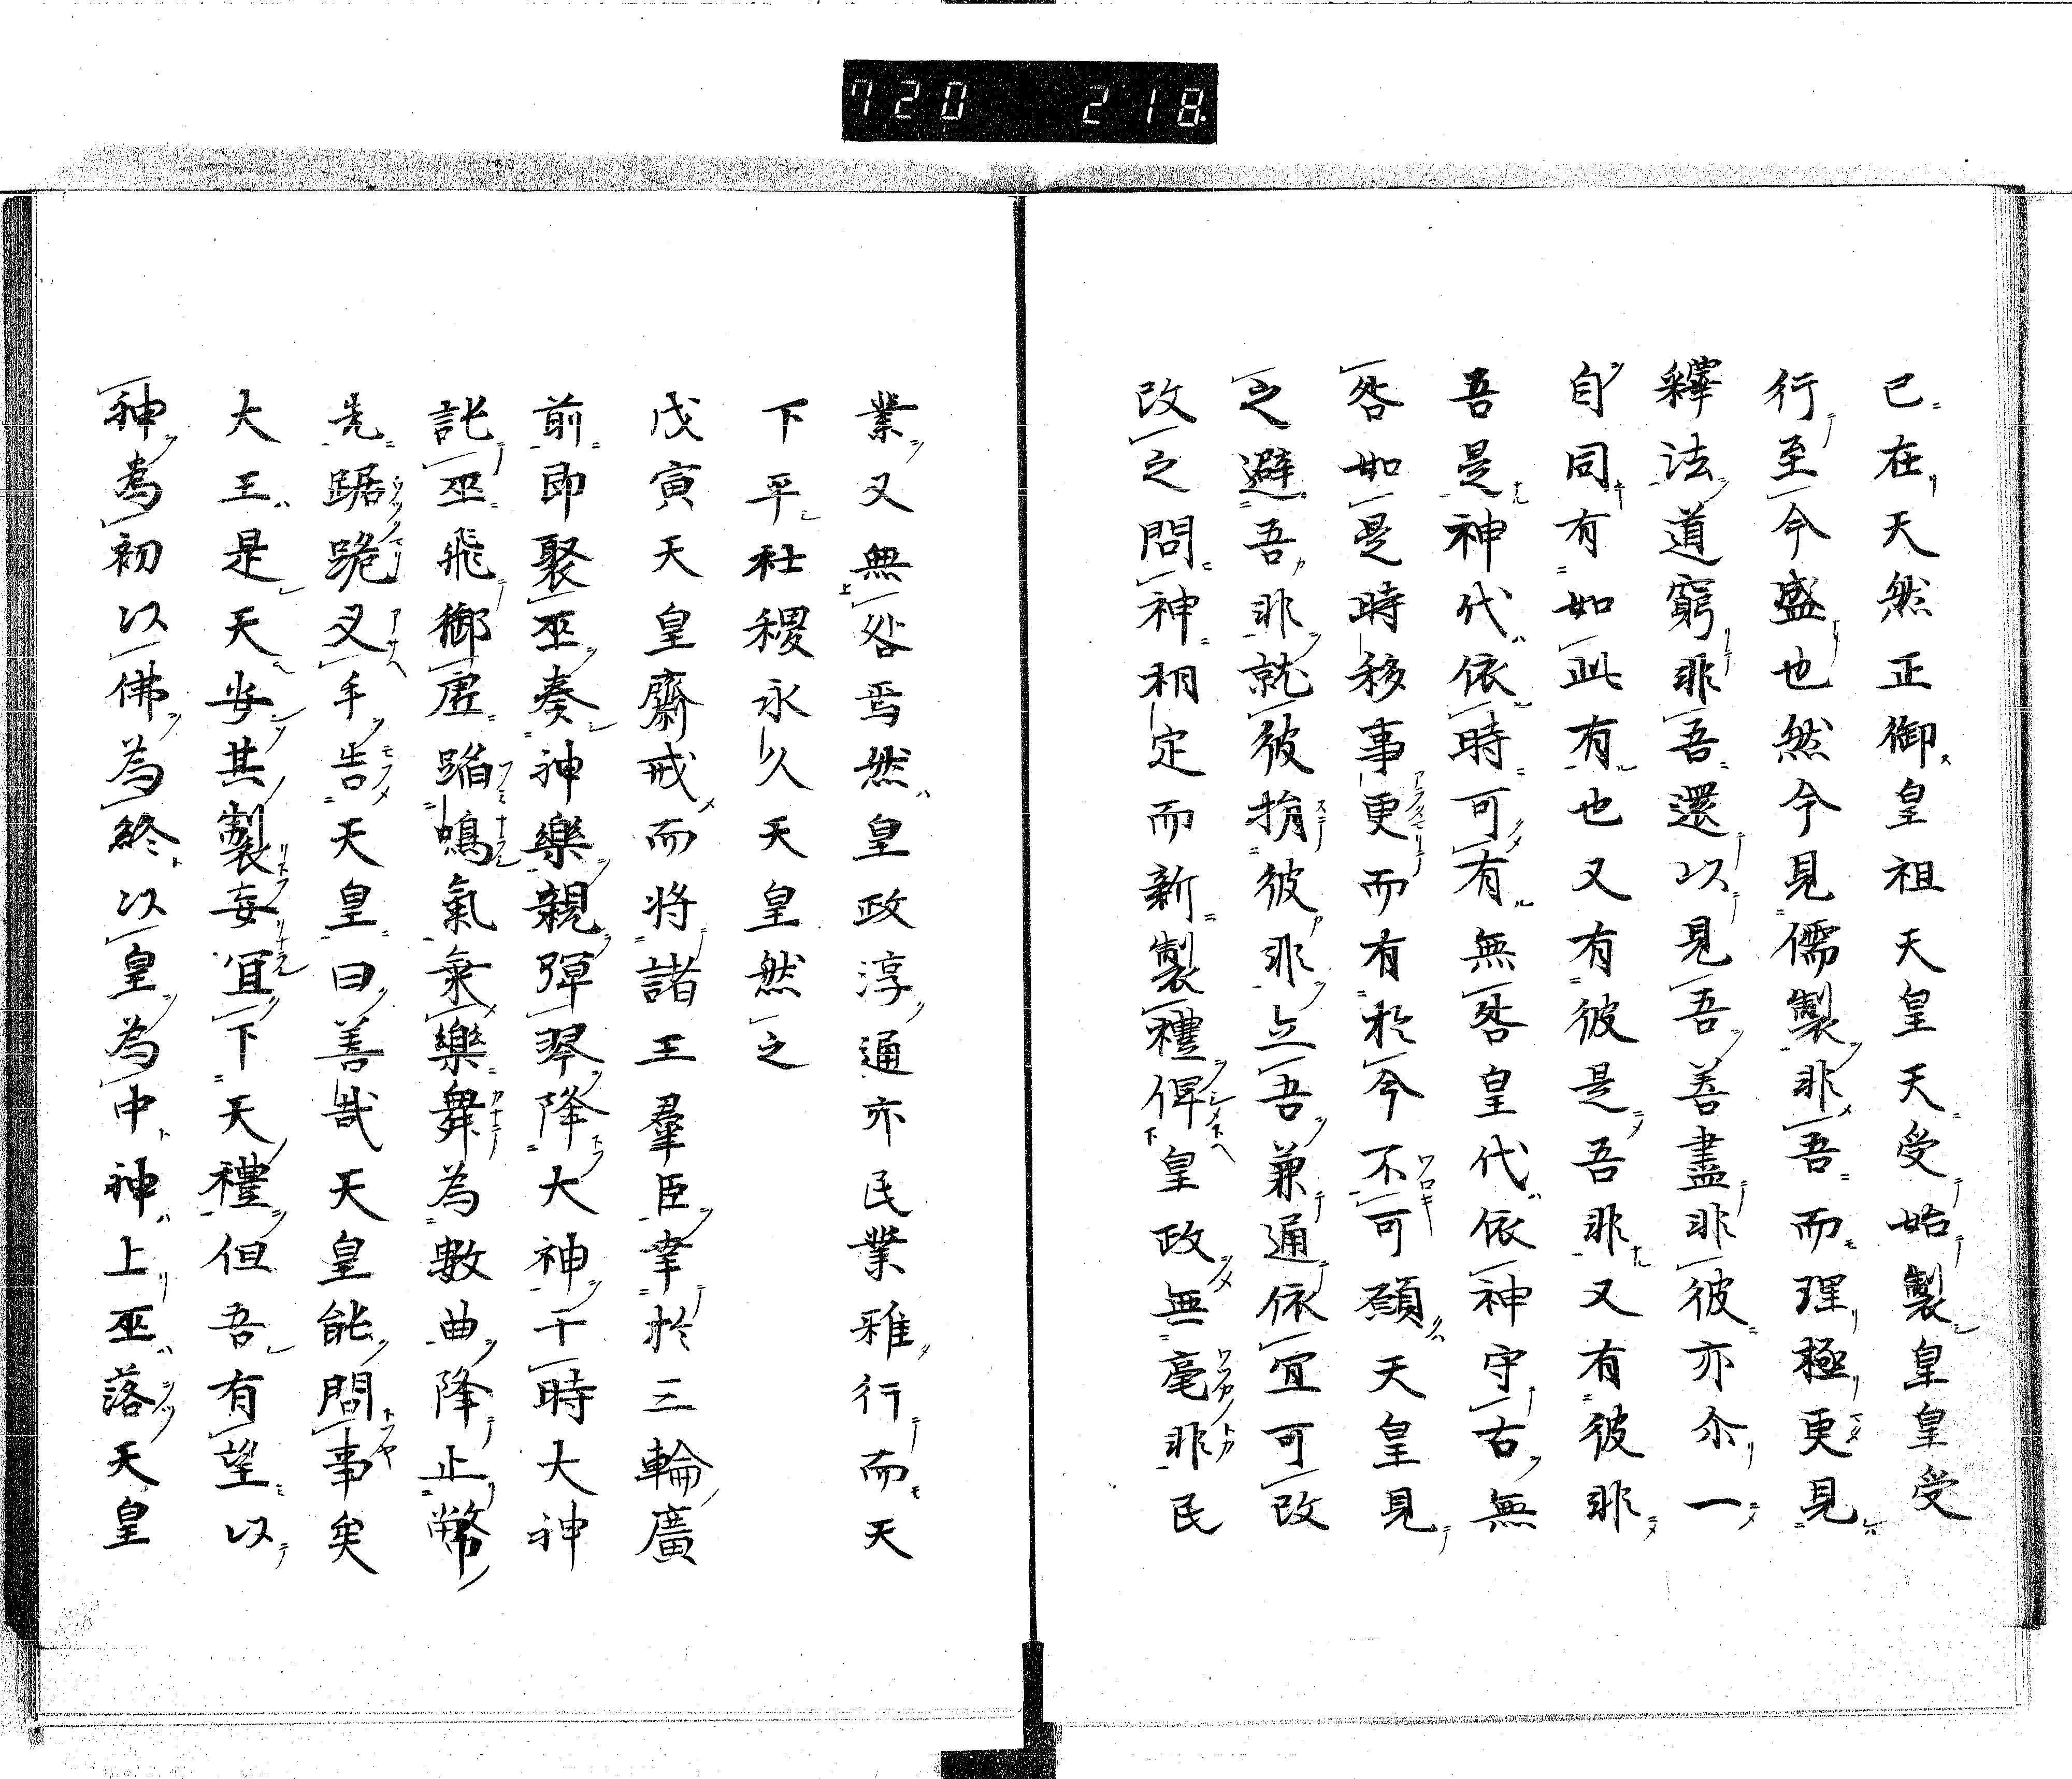 720 218
已在天然正御皇祖天皇天受始製皇皇受
行至今盛也然今見儒製非吾而理極更見
釋法道窮非吾還以見吾善盡非彼亦尒一
自同有如此有也又有彼是吾非又有彼非
吾是神代依時可有無咎皇代依神守右無
咎如是時移事更而有於今不可顧天皇見
之避吾非就彼捐彼非立吾兼通依宜可改
改之問神相定而新製禮俾皇政無毫非民
業又無咎焉然皇政淳通亦民業雅行而天
下平社稷永久天皇然之
戊寅天皇齋戒而將諸王羣臣幸於三輪廣
前即聚巫奏神樂親彈琴降大神干時大神
託巫飛御虛蹈鳴氣乘樂舞為數曲降止幣
先踞跪叉手告天皇曰善哉天皇能問事矣
大王是天安其製妄宜下天禮但吾有望以
神為初以佛為終以皇為中神上巫落天皇